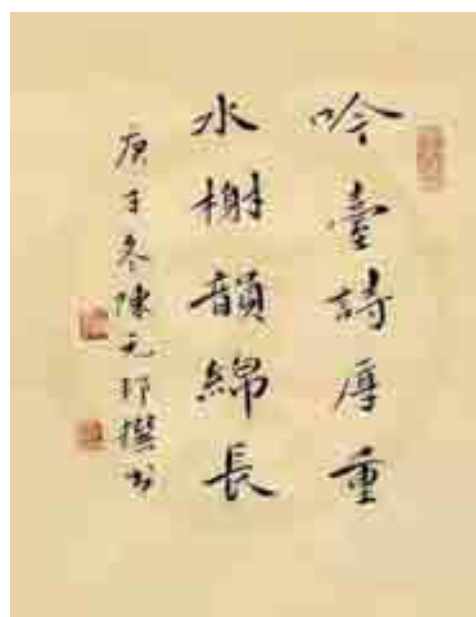 吟臺詩厚重
水榭韻綿長
庚子冬陳元邦撰書